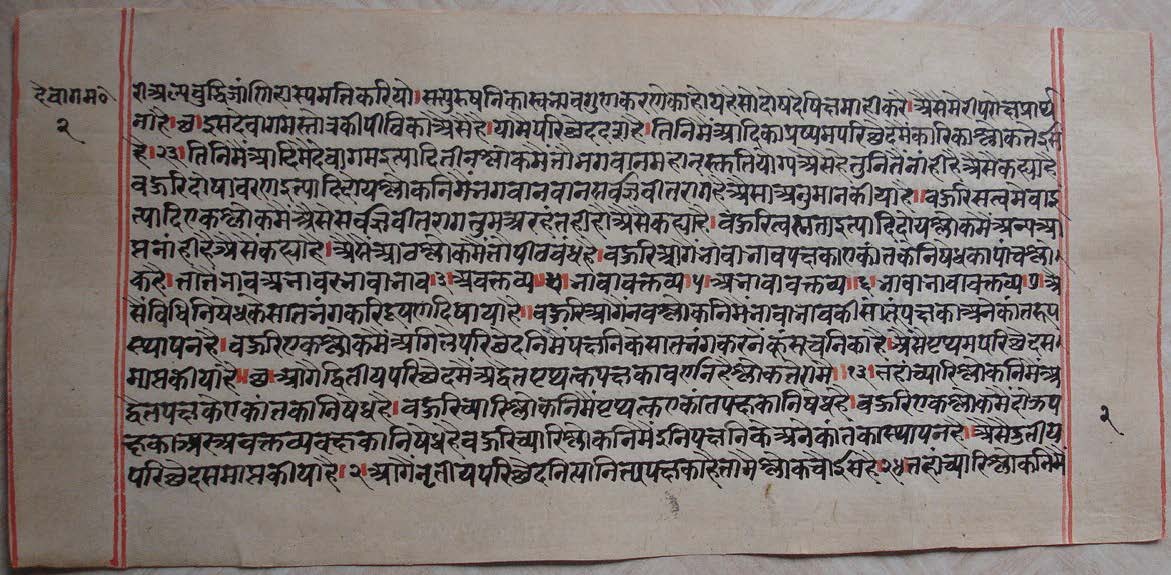 देवागम०
२
रो अल्पबुद्धि जांणि हास्य मति करियो। सत्पुरुषनिका स्वभाव गुण करणेका होय है सो दोष देषि क्षमा ही करै। अैसैं मेरी परोक्ष प्रार्थ
ना है। इस देवागमस्तोत्रकी पीठिका अैसैं है। यामैं परिच्छेद दश है। तिनिमैं आदिका प्रथम परिच्छेदमैं कारिका श्लोक तेईस
है।२३। तिनिमैं आदिमैं देवागम इत्यादि तीन श्लोकमैं तौ भगवान महान स्तुति योग्य अैसे हेतुनितैं नांही है अैसैं कह्या है
बहुरि दोषावरण इत्यादि दोय श्लोकनिमैं भगवान सर्वज्ञ वीतराग है अैसा अनुमान कीया है। बहुरि सत्वमेवाइ
त्यादि एक श्लोकमैं अैसैं सर्वज्ञ वीतराग तुम अरहंत ही हो अैसैं कह्या है। बहुरि त्वन्मता इत्यादि दोय श्लोकमैं अन्य आ
प्त नांही है अैसैं कह्या है। अैसैं आठ श्लोकमैं तौ पीठबंध है। बहुरि आगैं भावाभाव पक्षका एकांतके निषेधका पांच श्लो
क है। तातैं भाव अभाव भावाभाव ३ अवक्तव्य ४ भावावक्तव्य ५ अभावावक्तव्य ६ भावाभावावक्तव्य ७ अै
सैं विधि निषेधकै सात भंग करि दृष्टांत दिषाया है। बहुरि आगैं नव श्लोकनिमैं भावाभावकी सातौं पक्षका अनेकांत रूप
स्थापन है। बहुरि एक श्लोकमैं अगिले परिच्छेदनिमैं पक्षनिकै सात भंग करनेंकूं सूचनिका है। अैसैं प्रथम परिच्छेद स
माप्त कीया है। आगैं द्वितीय परिच्छेदमैं अद्वैत पृथक्त्व पक्षका वर्णन है श्लोक तेरामैं।१३। तहां च्यारि श्लोकनिमैं अ
द्वैत पक्षके एकांतका निषेध है। बहुरि च्यारि श्लोकनिमैं पृथक्त्व एकांत पक्षका निषेध है। बहुरि एक श्लोकमैं दोऊ प
क्षका अर अवक्तव्य पक्षका निषेध है बहुरि च्यारि श्लोकनिमैं इनि पक्षनिकै अनेकांतका स्थापन है। अैसैं द्वितीय
परिच्छेद समाप्त कीया है।२। आगैं तृतीय परिच्छेद नित्यानित्य पक्षका है तामैं श्लोक चौईस है २४ तहां च्यारि श्लोकनिमैं
२